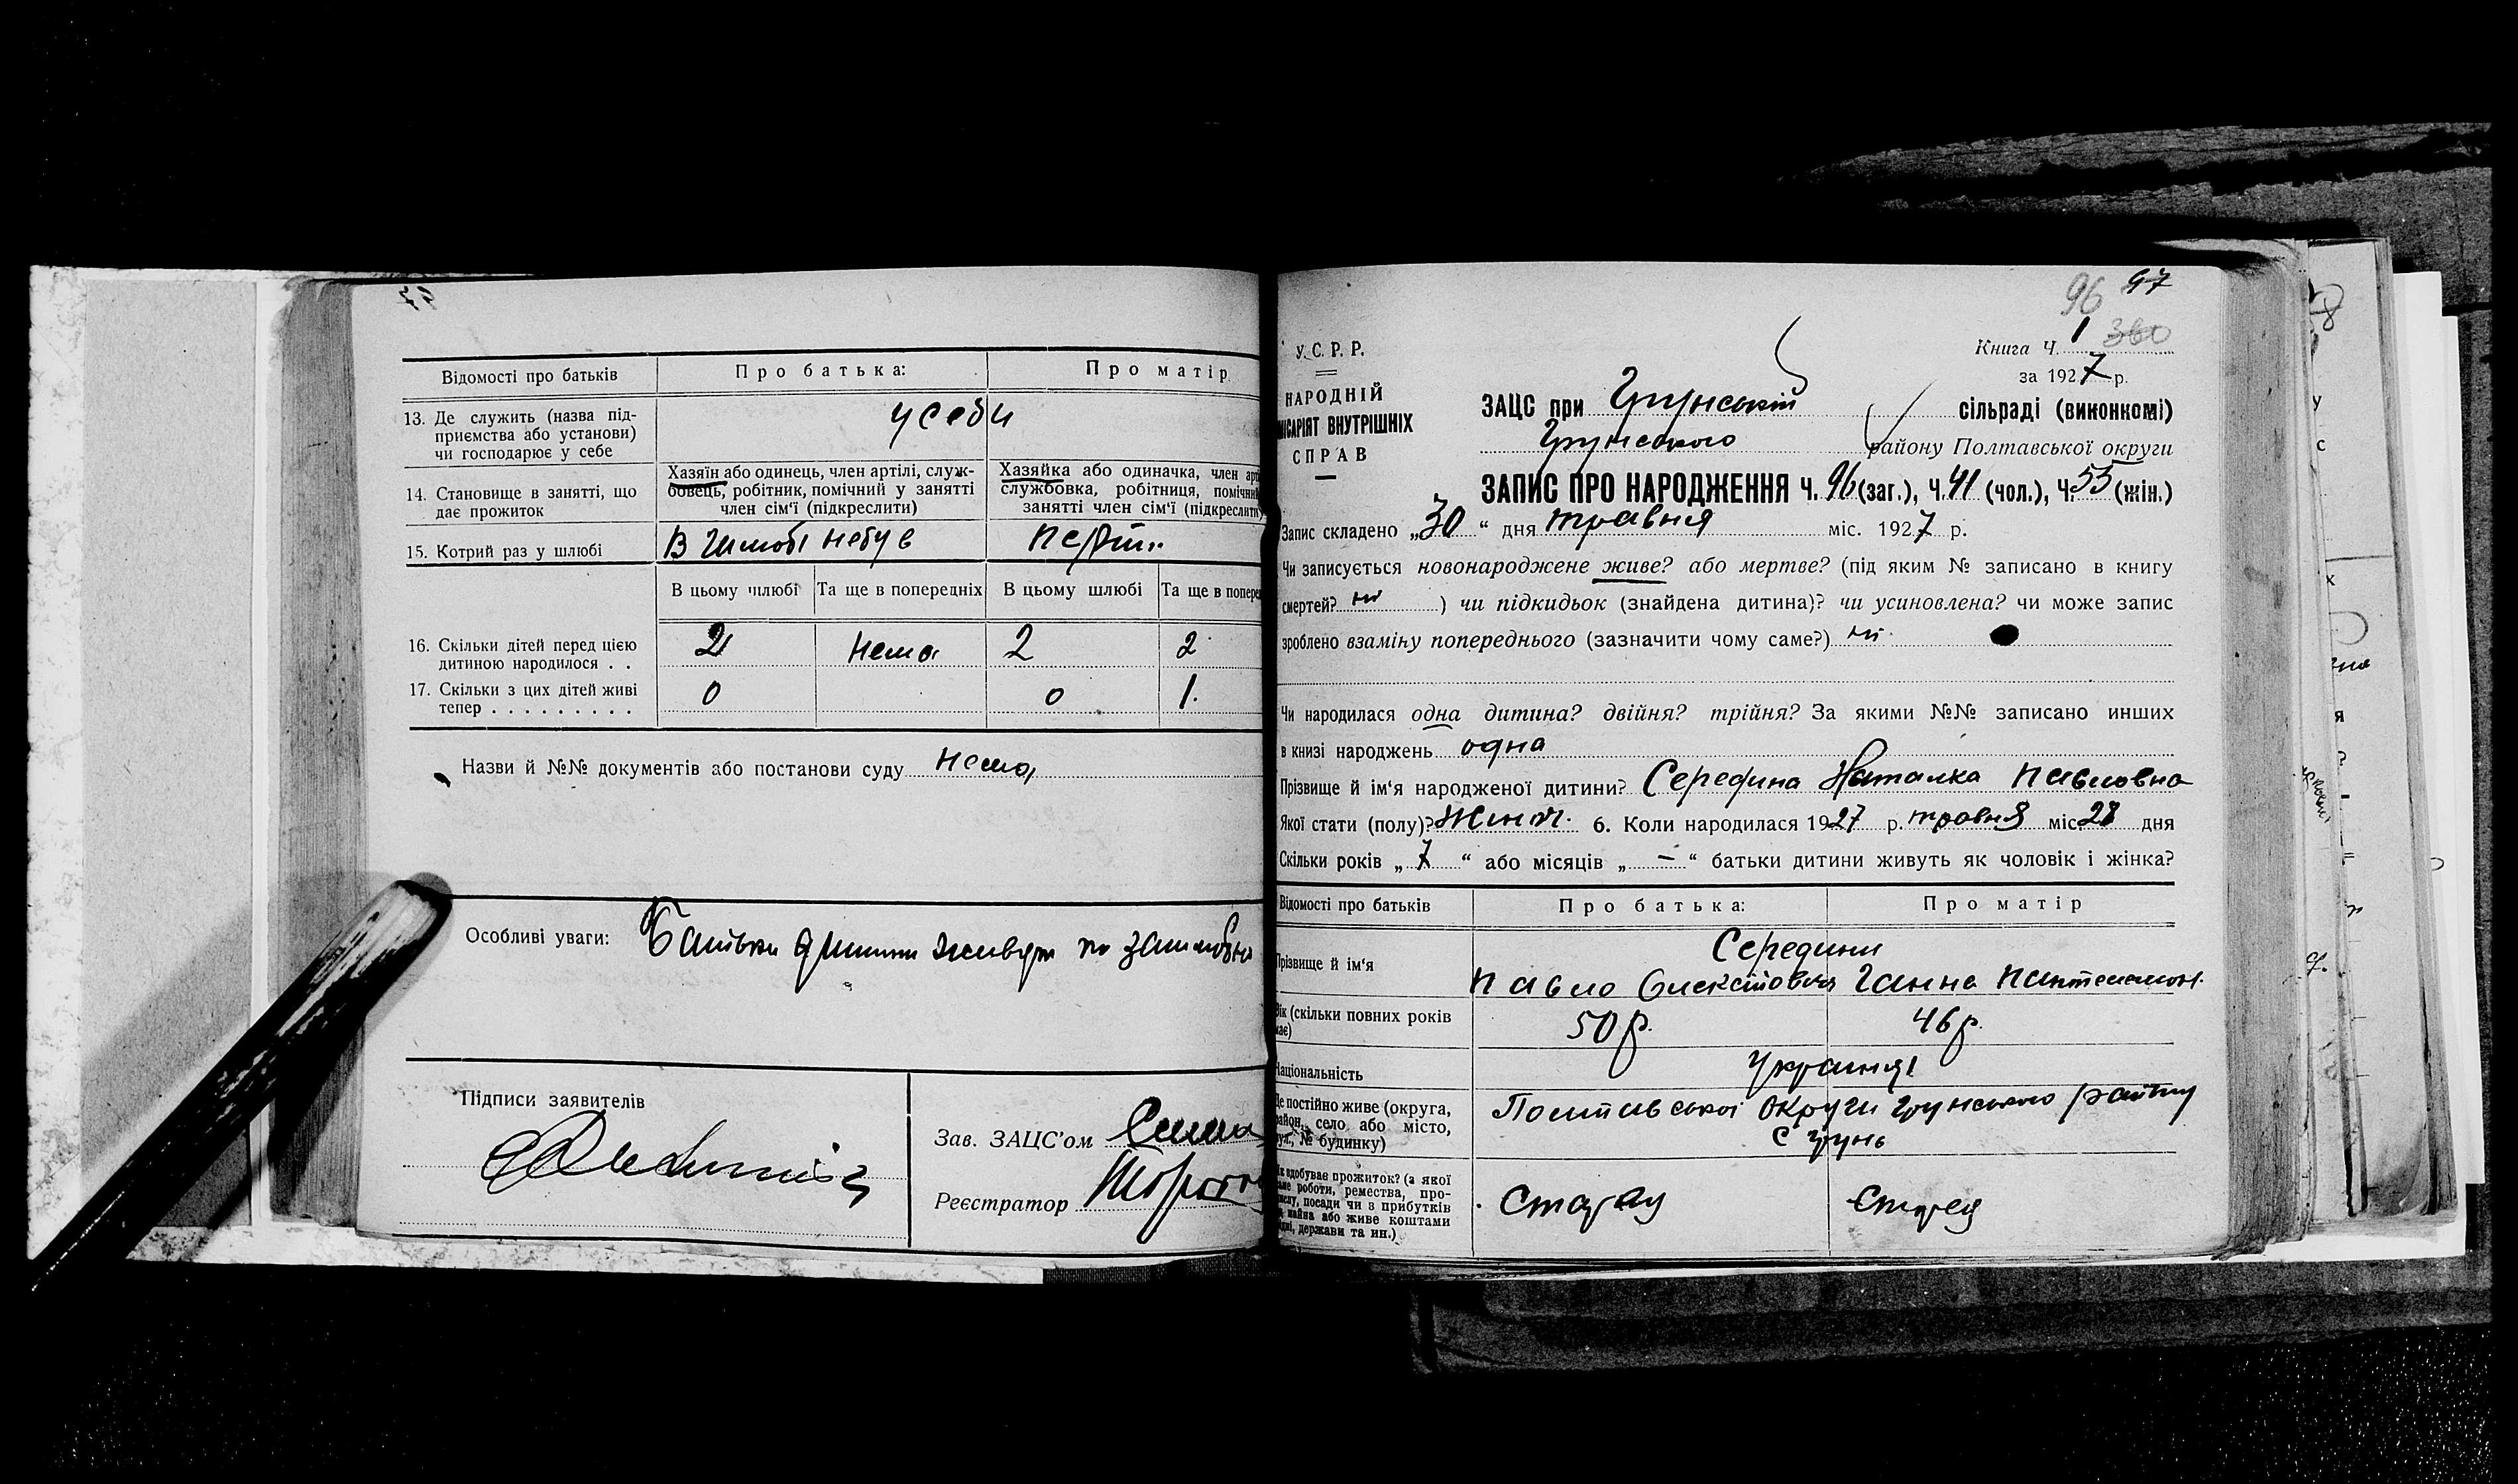 Відомості про батьків
Про батька:
Про матір
13. Де служить (назва під-
приємства або установи)
чи господарює у себе
у себи
14. Становище в занятті, що
дає прожиток
Хазяїн або одинець, член артілі, служ-
бовець, робітник, помічний у занятті
член сім'ї (підкреслити)
Хазяйка або одиначка, член арті
службовка, робітниця, помічний
занятті член сім'ї (підкреслити)
15. Котрий раз у шлюбі
В шлюбі небув
В цьому шлюбі
Та ще в попередніх
В цьому шлюбі
Та ще в попере
16. Скільки дітей перед цією
дитиною народилося . .
2
Нема
2
2
17. Скільки з цих дітей живі
тепер . . . . . . . . .
0
0
1.
Назви й №№ документів або постанови суду Нема
Особливі уваги: Батьки дитини живуть
Підписи заявителів
Зав. ЗАЦС'ом
Реєстратор
96 97
У. С. Р. Р.
Книга Ч. 1 360
за 1927 р.
НАРОДНІЙ
ІСАРІЯТ ВНУТРІШНІХ
СПРАВ
ЗАЦС при Грунській сільраді (виконкомі)
Грунського району Полтавської округи
ЗАПИС ПРО НАРОДЖЕННЯ Ч. 96 (заг.), Ч. 41 (чол.), Ч. 55 (жін.)
Запис складено „30“ дня травня міс. 1927 р.
Чи записується новонароджене живе? або мертве? (під яким № записано в книгу
смертей? ні ) чи підкидьок (знайдена дитина)? чи усиновлена? чи може запис
зроблено взаміну попереднього (зазначити чому саме?) ні
Чи народилася одна дитина? двійня? трійня? За якими №№ записано инших
в книзі народжень одна
Прізвище й ім'я народженої дитини? Середина Наталка Павловна
Якої стати (полу)? Жіноч. 6. Коли народилася 1927 р. травня міс. 28 дня
Скільки років „7“ або місяців „–“ батьки дитини живуть як чоловік і жінка?
Відомості про батьків
Про батька:
Про матір
Прізвище й ім'я
Середини
Павло Олексійович Ганна Пантелемон.
Вік (скільки повних років
має)
50 р.
46 р.
Національність
Україн
Де постійно живе (округа,
район, село або місто,
вул., № будинку)
Полтавської округи Грунського району
с Грунь
Як здобуває прожиток? (з якої
саме роботи, ремества, про-
мислу, посади чи з прибутків
від майна або живе коштами
рідні, держави та ин.)